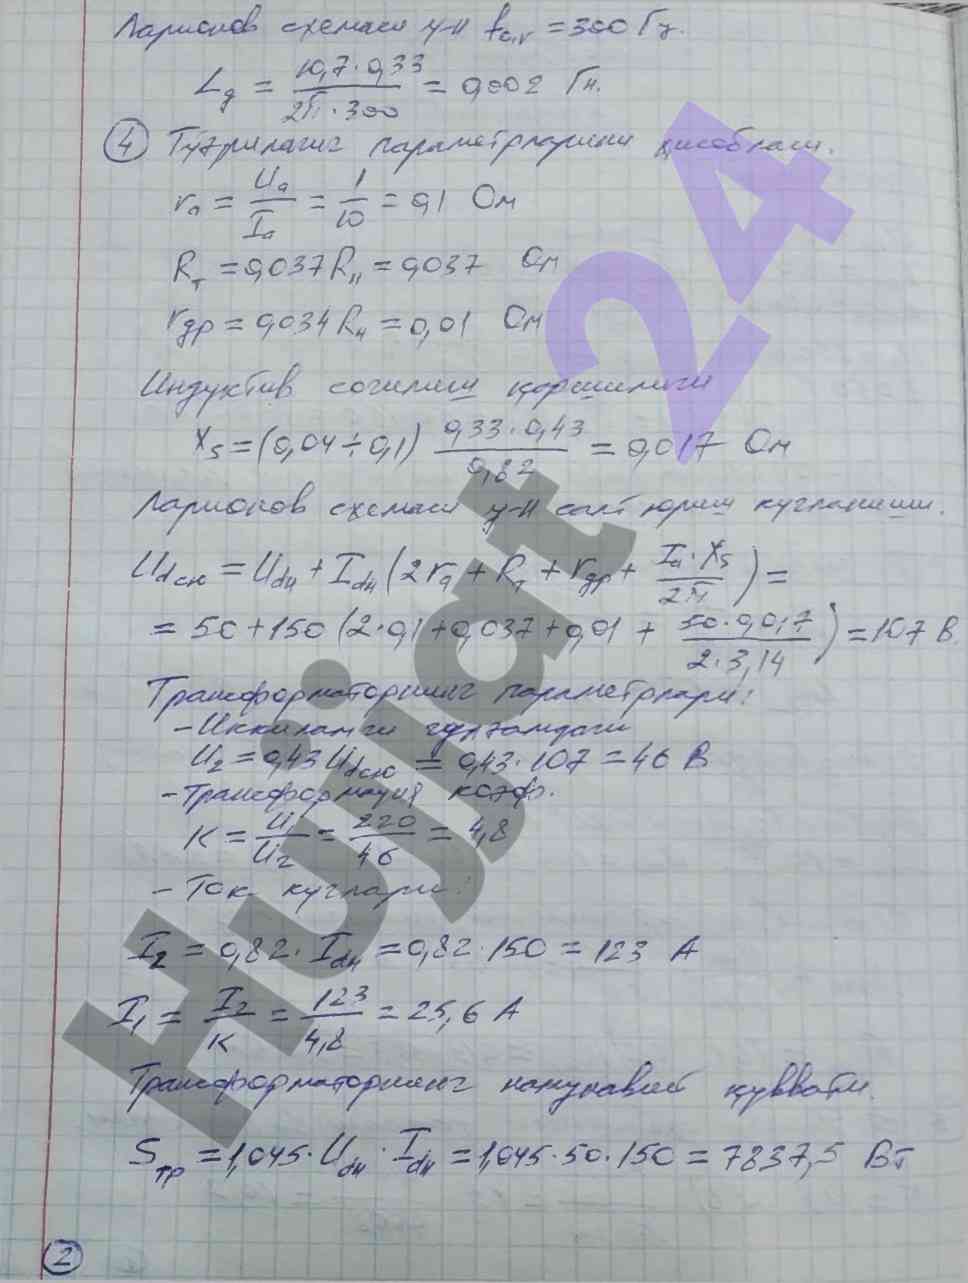 Ларионов схемаси у-н fо,г = 300 Гц.
Lд = 10,7·0,33 / 2π·300 = 0,002 Гн.
④ Тўғрилагич параметрларини ҳисоблаш.
rа = Uа / Iа = 1 / 10 = 0,1 Ом
Rт = 0,037Rн = 0,037 Ом
rдр = 0,034Rн = 0,01 Ом
Индуктив сочилиш қаршилиги
Xs = (0,04÷0,1) 0,33·0,43 / 0,82 = 0,017 Ом
Ларионов схемаси у-н салт юриш кучланиши.
Udсю = Udн + Idн (2rа + Rт + rдр + Iа·Xs / 2π) =
= 50+150 (2·0,1+0,037+0,01 + 50·0,017 / 2·3,14) = 107 В.
Трансформаторнинг параметрлари:
- Иккиламчи чулғамдаги
U2 = 0,43Udсю = 0,43·107 = 46 В
- Трансформация коэф.
К = U1 / U2 = 220 / 46 = 4,8
- Ток кучлари:
I2 = 0,82·Idн = 0,82·150 = 123 А
I1 = I2 / К = 123 / 4,8 = 25,6 А
Трансформаторнинг намунавий қуввати.
Sтр = 1,045·Udн·Idн = 1,045·50·150 = 7837,5 Вт
2
Hujjat 24